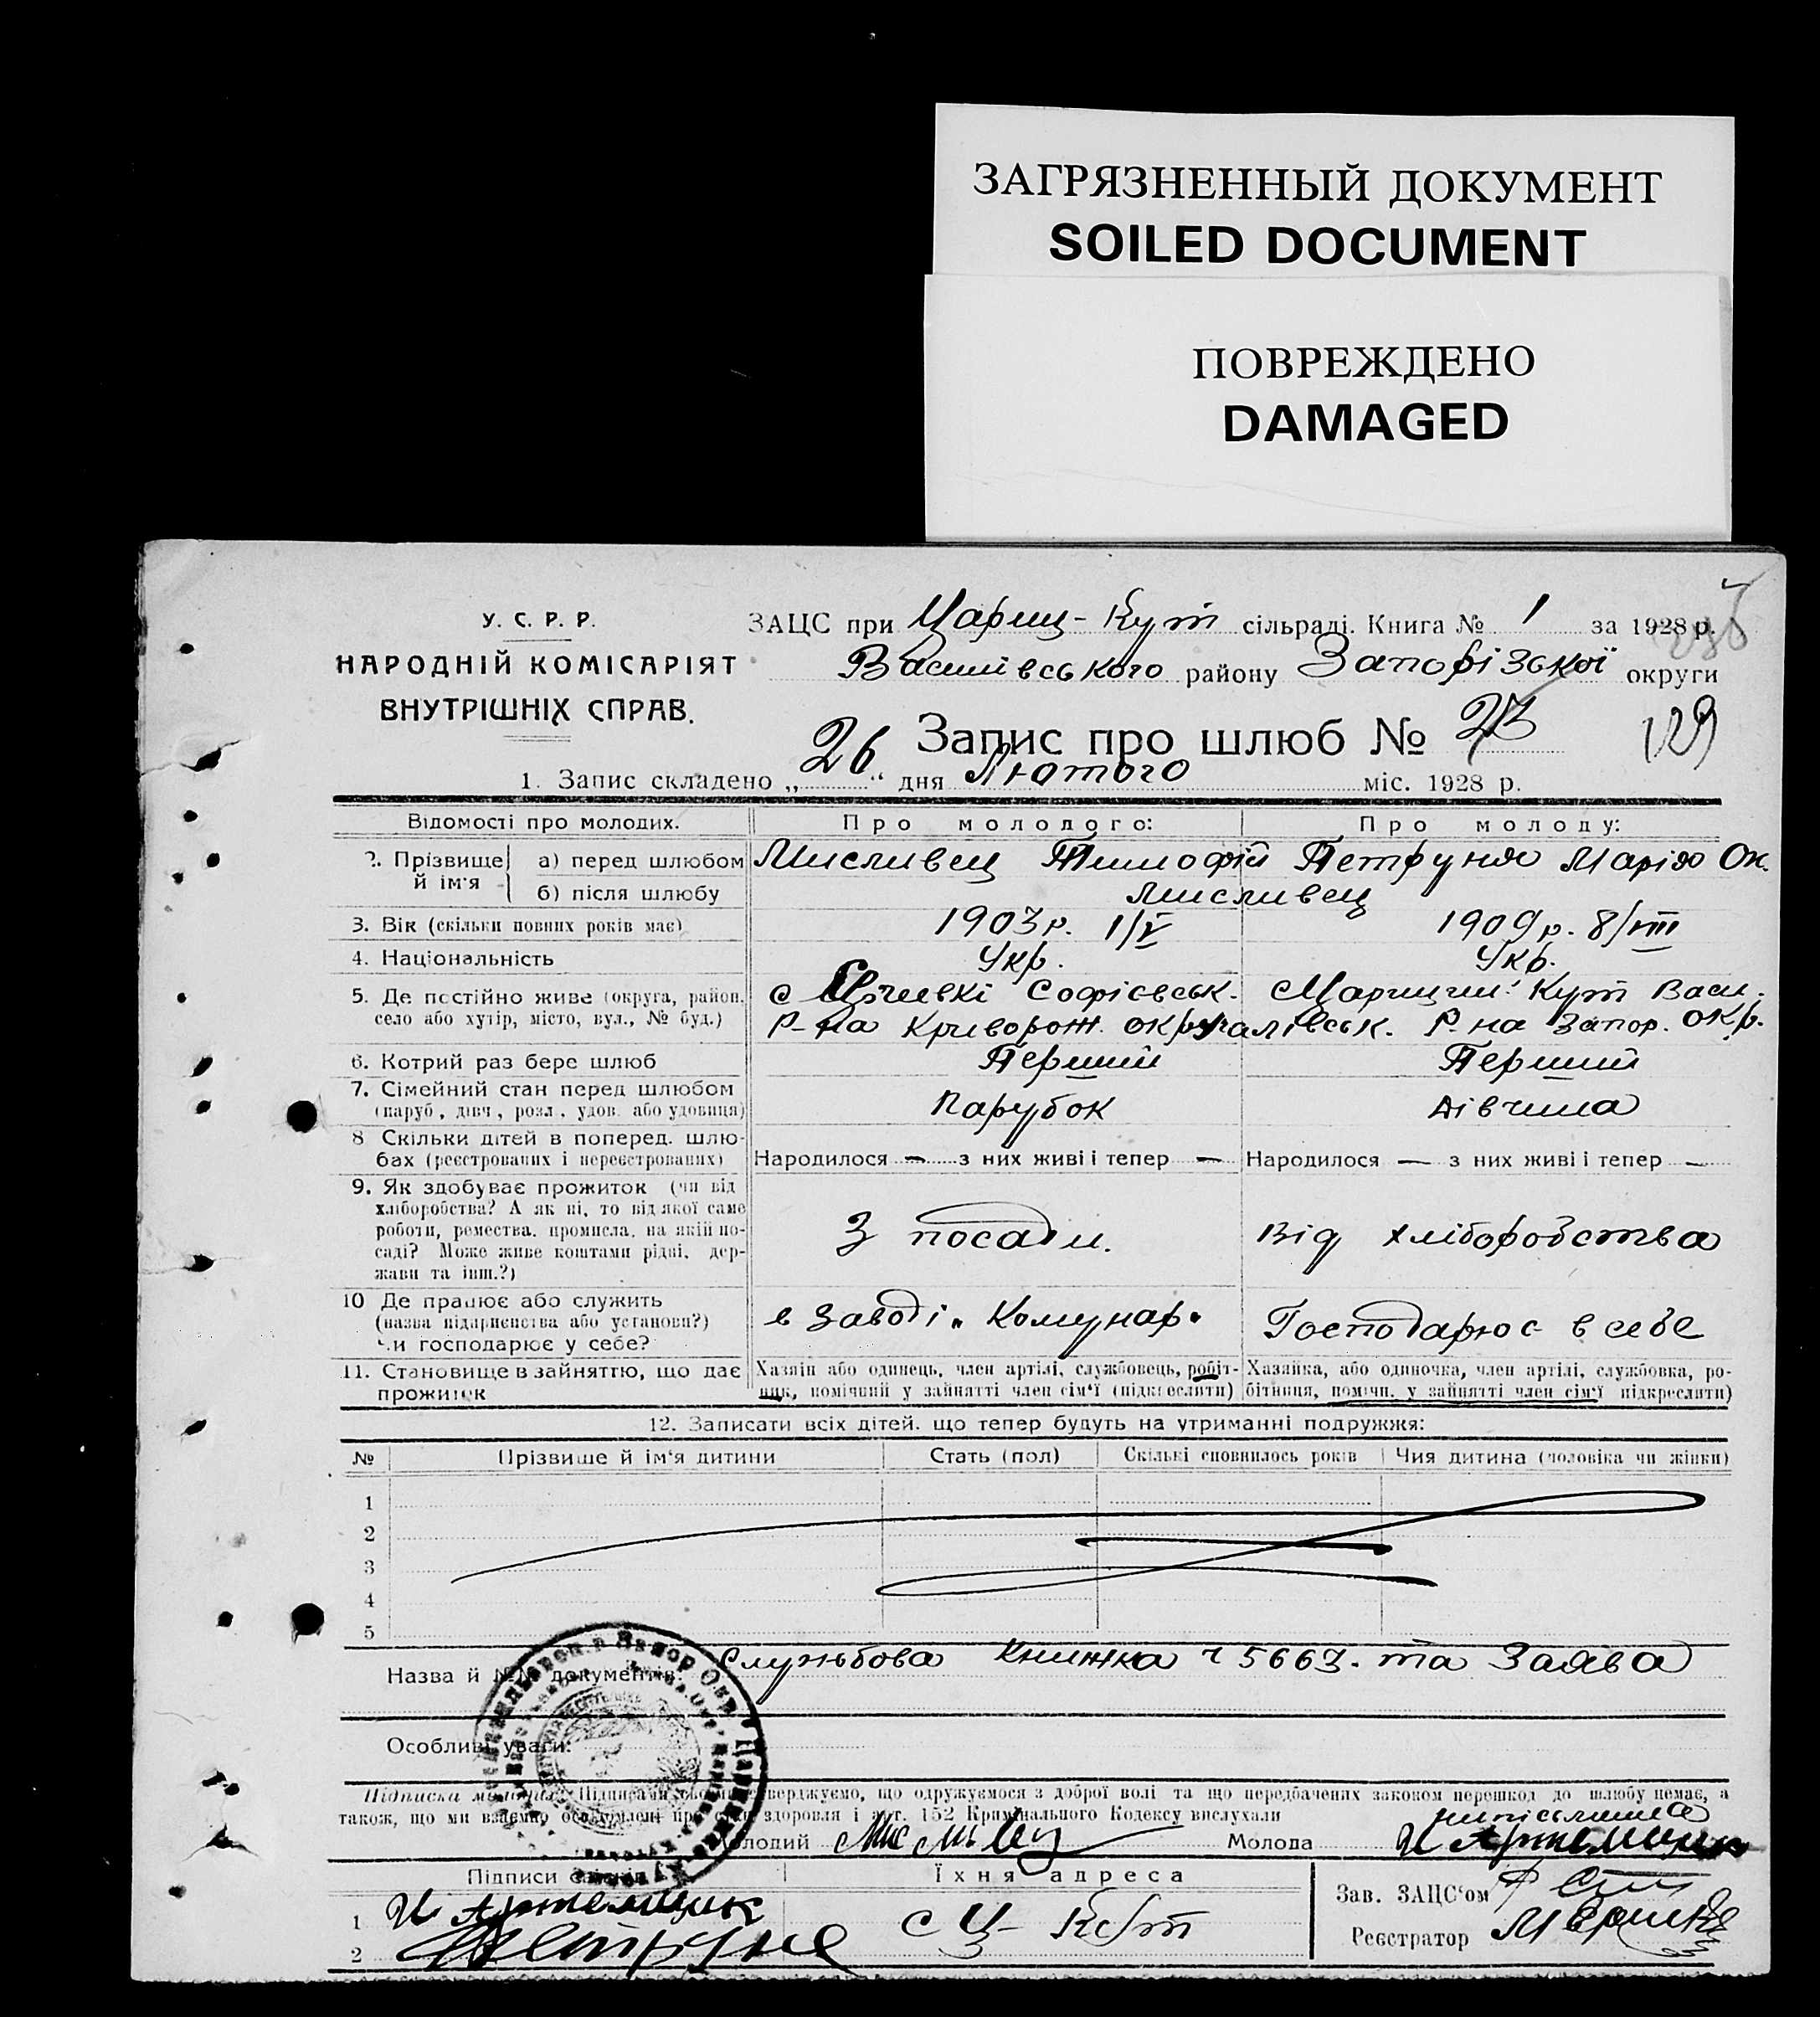 ЗАГРЯЗНЕННЫЙ ДОКУМЕНТ
SOILED DOCUMENT
ПОВРЕЖДЕНО
DAMAGED
У. С. Р. Р.
НАРОДНІЙ КОМІСАРІЯТ
ВНУТРІШНІХ СПРАВ.
ЗАЦС при Цариц-Кут сільраді. Книга № 1 за 1928 р.
Василівського району Запорізької округи
Запис про шлюб № 23
129
1. Запис складено „26“ дня Лютого міс. 1928 р.
Відомості про молодих. Про молодого: Про молоду:
2. Прізвище й ім'я а) перед шлюбом Мисливец Тимофій Петруня Марія Ок.
б) після шлюбу Мисливец
3. Вік (скільки повних років має) 1903 р. 1/V 1909 р. 8/VIII
4. Національність Укр. Укр.
5. Де постійно живе (округа, район, с Софієвськ. Царицин Кут Васи-
село або хутір, місто, вул., № буд.) Р-на Криворож. окр. лівськ. Р-на Запор. окр.
6. Котрий раз бере шлюб Перший Перший
7. Сімейний стан перед шлюбом
(паруб., дівч., розл., удов. або удовиця) Парубок Дівчина
8 Скільки дітей в поперед. шлю-
бах (реєстрованих і нереєстрованих) Народилося — з них живі і тепер — Народилося — з них живі і тепер —
9. Як здобуває прожиток (чи від
хліборобства? А як ні, то від якої саме
роботи, ремества, промисла, на якій по-
саді? Може живе коштами рідні, дер-
жави та інш.?)
З посади. Від хліборобства
10 Де працює або служить
(назва підприємства або установи?)
чи господарює у себе?
в Заводі „Комунар“ Господарює в себе
11. Становище в зайняттю, що дає
прожиток
Хазяїн або одинець, член артілі, службовець, робіт-
ник, помічний у зайнятті член сім'ї (підкреслити)
Хазяйка, або одиночка, член артілі, службовка, ро-
бітниця, помічн. у зайнятті член сім'ї підкреслити)
12. Записати всіх дітей, що тепер будуть на утриманні подружжя:
№ Прізвище й ім'я дитини Стать (пол) Скількі сповнилось років Чия дитина (чоловіка чи жінки)
1
2
3
4
5
Назва й №№ документів: Службова Книжка ч 5663. та Заява
Особливі уваги:
Підписка молодих. Підписами своїми стверджуємо, що одружуємося з доброї волі та що передбачених законом перешкод до шлюбу немає, а
також, що ми взаємно освідомлені про стан здоровля і арт. 152 Кримінального Кодексу вислухали
Молодий Мисливец Молода неписьменна
И Артемищук
Підписи свідків Їхня адреса Зав. ЗАЦС'ом
1 И Артемищук с Ц-Кут
2 Петруня
Реєстратор